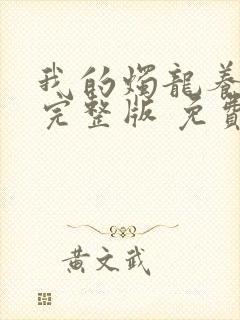 我的燭龍養
完整版 免費
黃文武